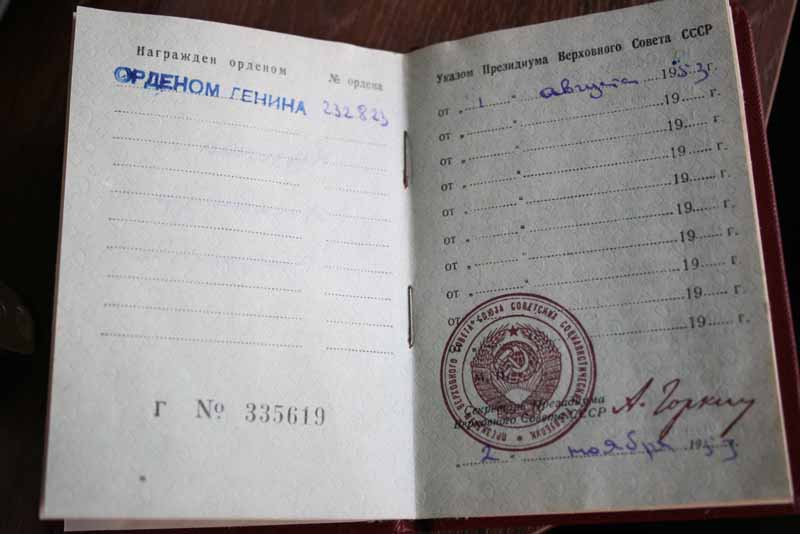 Награжден орденом № ордена
ОРДЕНОМ ЛЕНИНА 232823
Г № 335619
Указом Президиума Верховного Совета СССР
от „ 1 “ августа 1953 г.
от „ “ 19 г.
от „ “ 19 г.
от „ “ 19 г.
от „ “ 19 г.
от „ “ 19 г.
от „ “ 19 г.
от „ “ 19 г.
от „ “ 19 г.
от 19 г.
ПРЕЗИДИУМ ВЕРХОВНОГО СОВЕТА СОЮЗА СОВЕТСКИХ СОЦИАЛИСТИЧЕСКИХ РЕСПУБЛИК
Секретарь Президиума
Верховного Совета СССР А. Горкин
„ 2 “ ноября 1953 г.